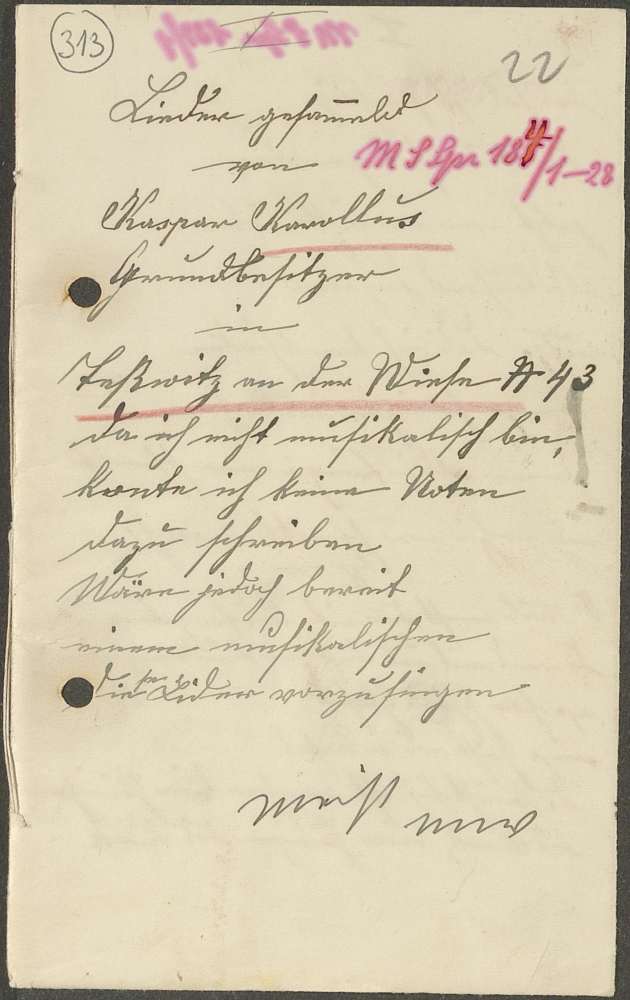 313
22
Lieder gesammeld
von
MS Spr 184/1-28
Kaspar Karollus
Grundbesitzer
in
Teßwitz an der Wiese № 43
da ich nicht musikalisch bin,
konte ich keine Noten
dazu schreiben
Wäre jedoch bereit
einem musikalischen
diese Lider vorzusingen
meist